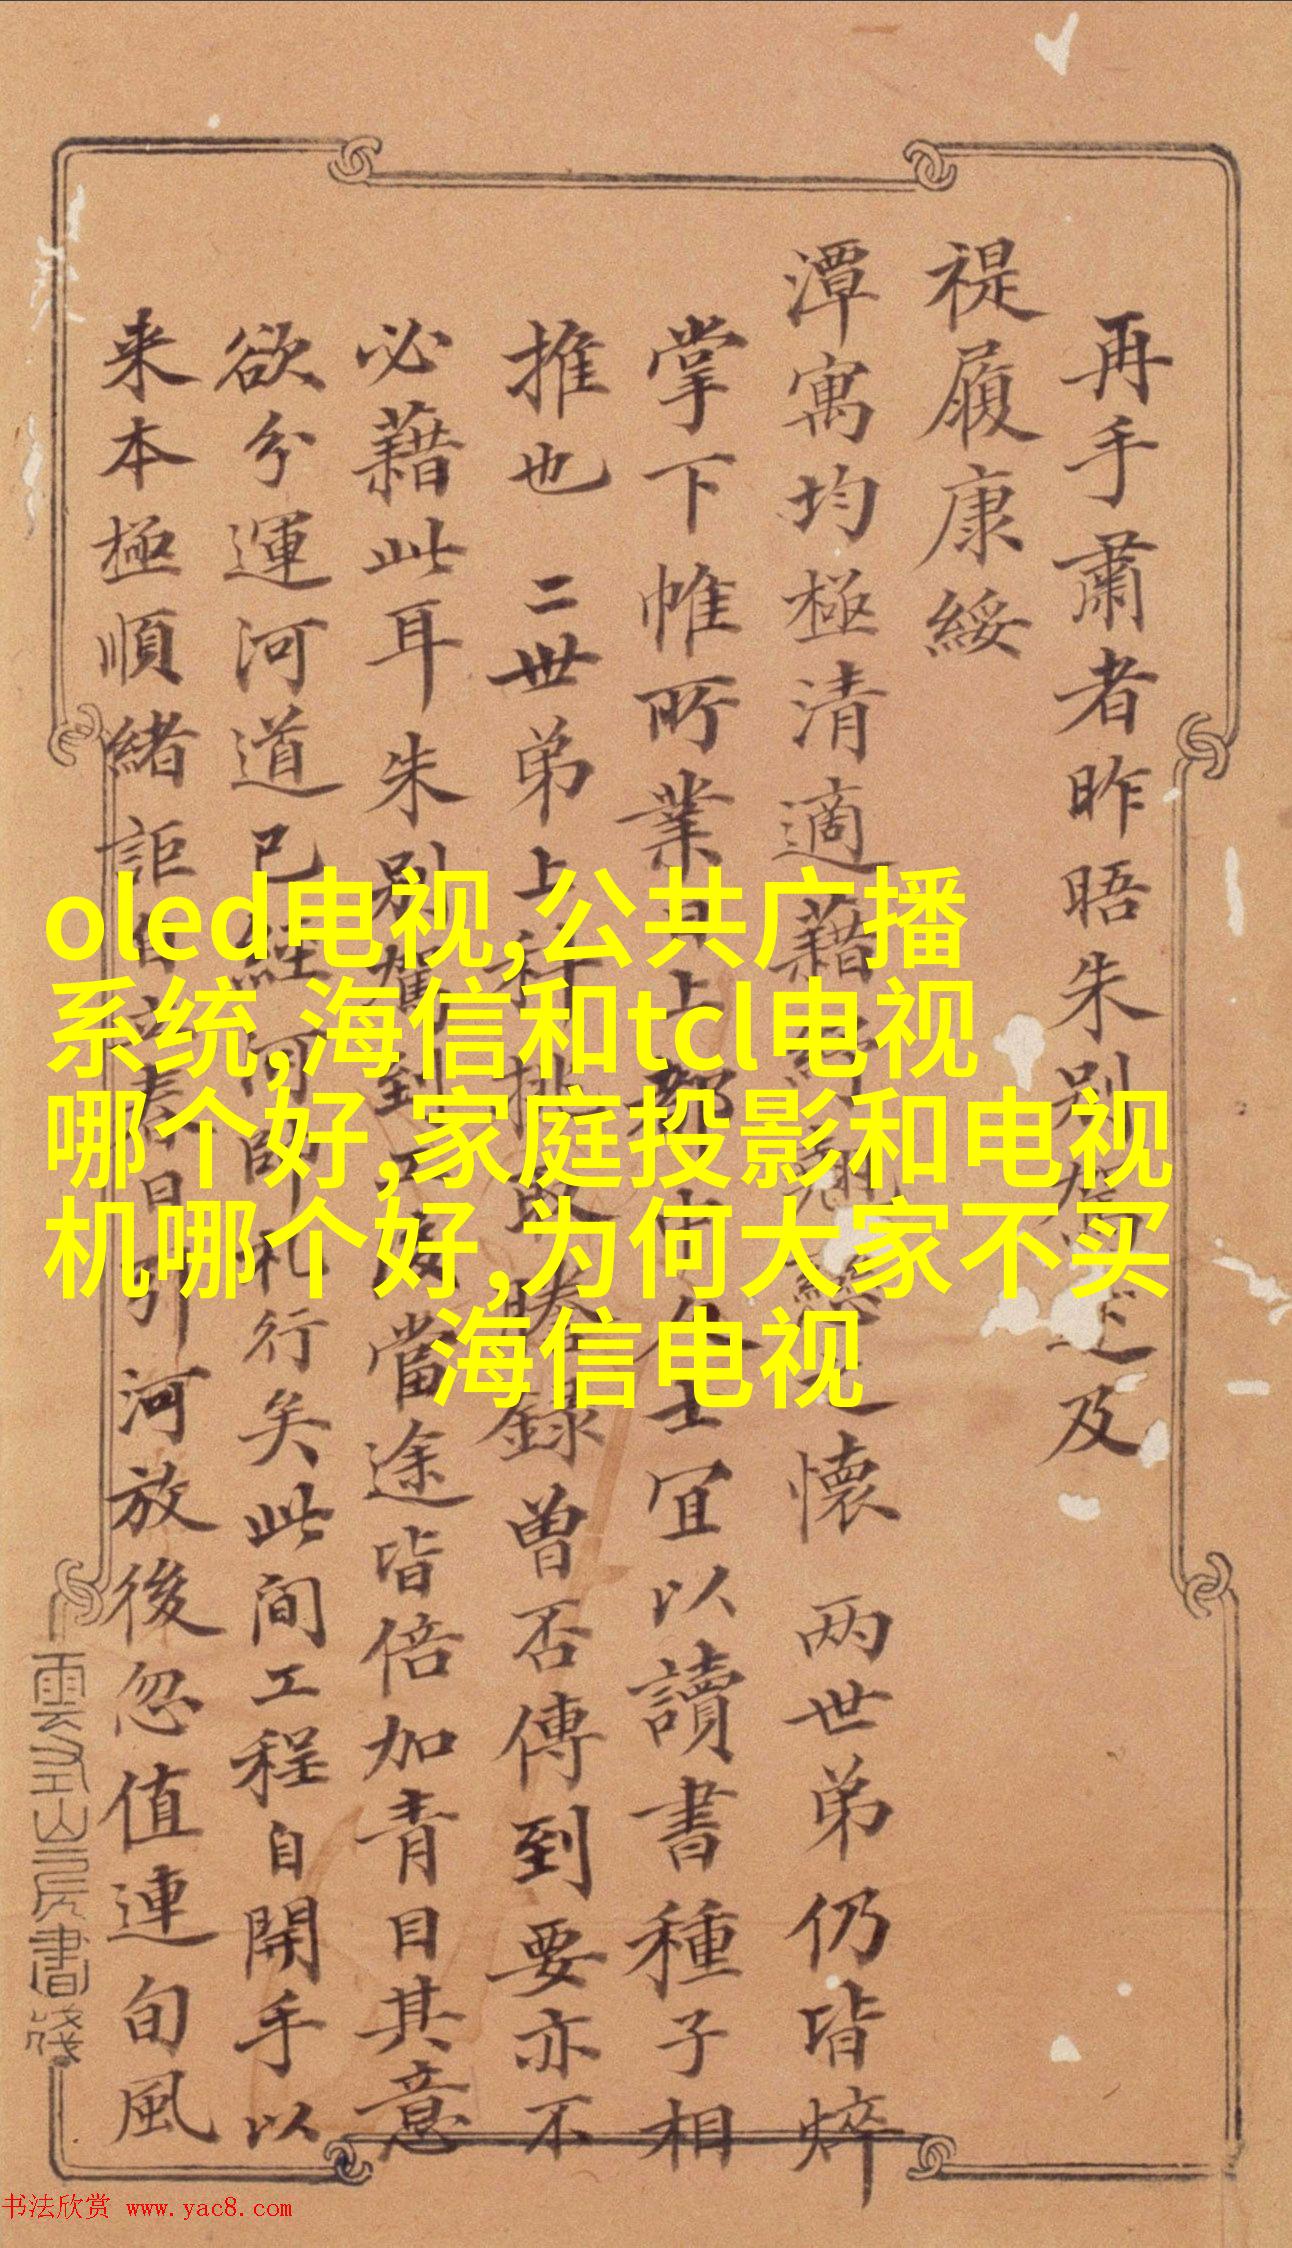 再手肅者昨晤朱别
及
禔履康綏
潭寓均極清適藉
懷 两世弟仍皆焠
掌下帷所業
士宜以讀書種子相
推也 二世弟上科
錄曾否傳到要亦不
必藉此耳朱别駕到
當途皆倍加青目其意
欲兮運河道已經河帥札行矣此间工程自開手以
来本極順緒詎自
引河放後忽值連旬風
雲
山房書箋
oled电视,公共广播
系统,海信和tcl电视
哪个好,家庭投影和电视
机哪个好,为何大家不买
海信电视
书法欣赏 www.yac8.com